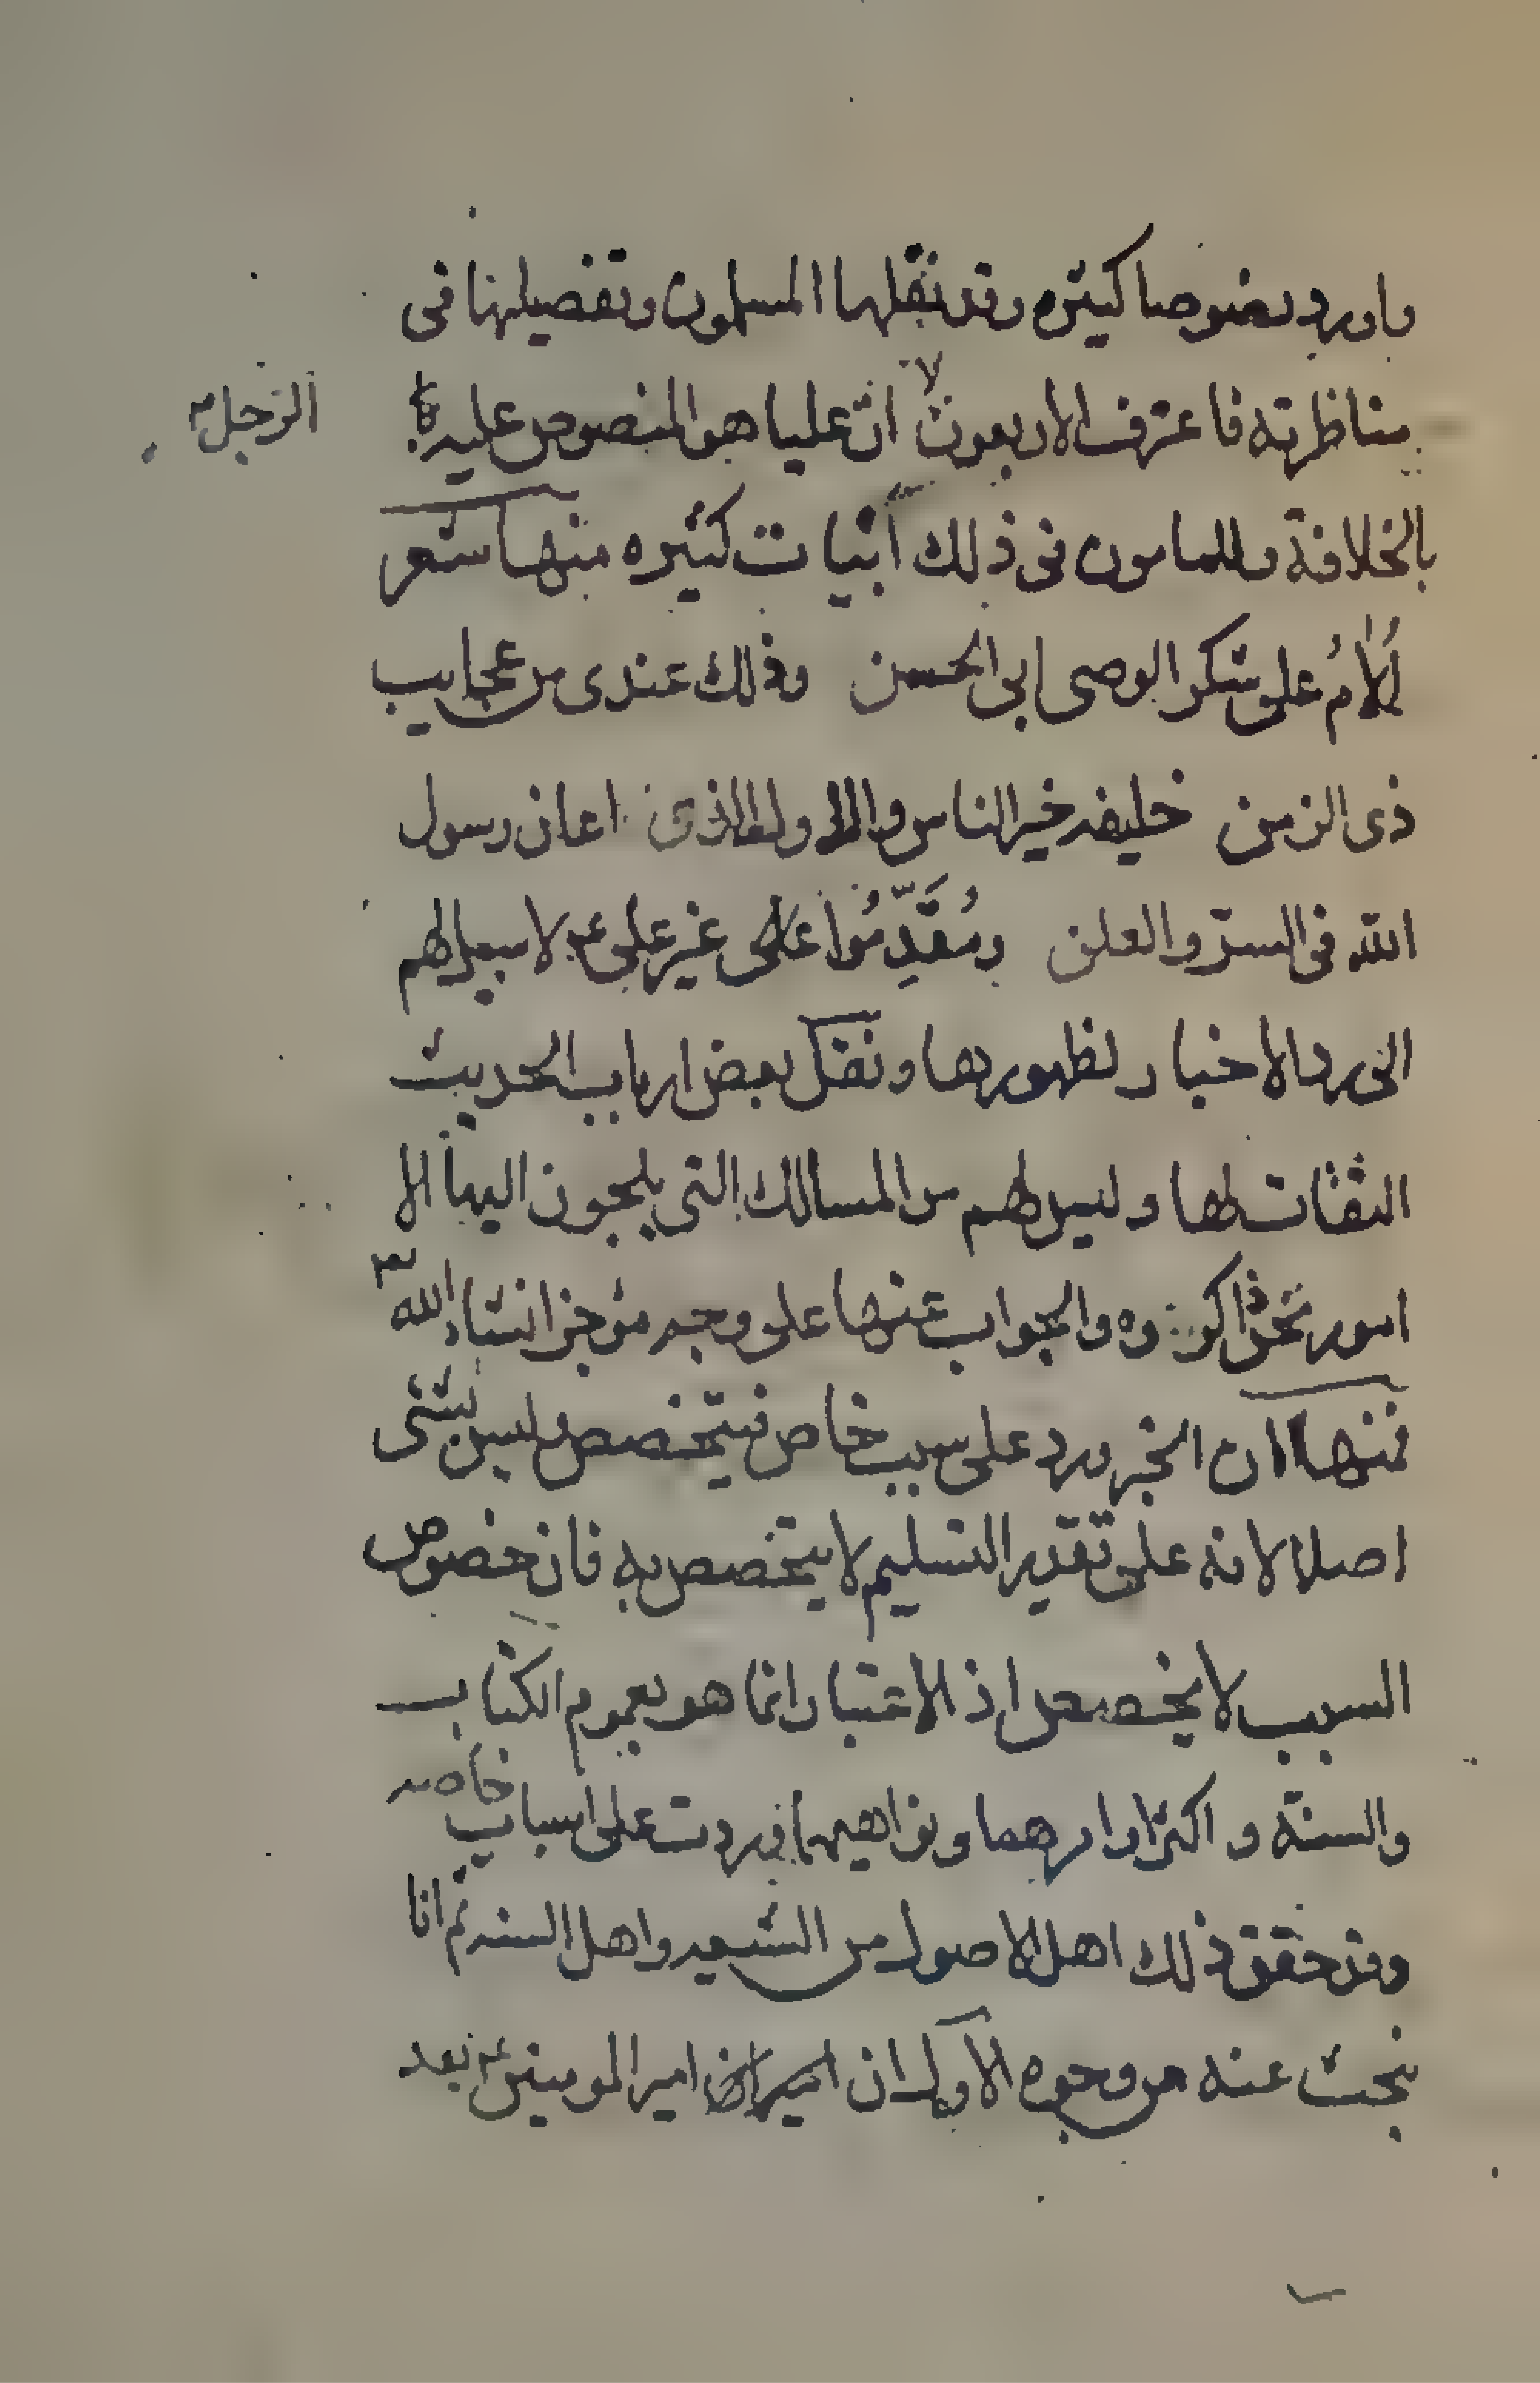 واورد نصوصا كثيره وقد نقلها المسلمون وتفصيلها فى
مناظرته فاعترف الاربعون ان عليا هو المنصوص عليه
الرجل
بالخلافة وللمامون فى ذلك ابيات كثيره منها شعر
أُلامُ على شكر الوصى ابى الحسن وذلك عندى من عجايب
ذى الزمن خليفه خير الناس والاول الذى اعان رسول
الله فى السرّ والعلن ومُقَدِّمُوا على غير على لا سبيل لهم
الى رد الاخبار لظهورها ونقل بعض ارباب الحديث
الثقات لها وليس لهم من المسالك التى يلجون اليها الا
امور نحن ذاكروه والجواب عنها على وجه موجز انشاء الله
فمنها ان الخبر ورد على سبب خاص فيتخصص وليس بشئ
اصلا لانه على تقدير التسليم لا يتخصص به فان خصوص
السبب لا يخصص اذ الاعتبار انما هو بعموم الكتاب
والسنة و اكثر اوامرهما ونواهيهما وردت على اسباب خاصه
وقد حقق ذلك اهل الاصول من الشيعه واهل السنه ثم انا
نبحث عنه من وجوه الاول ان امير المومنين بعد